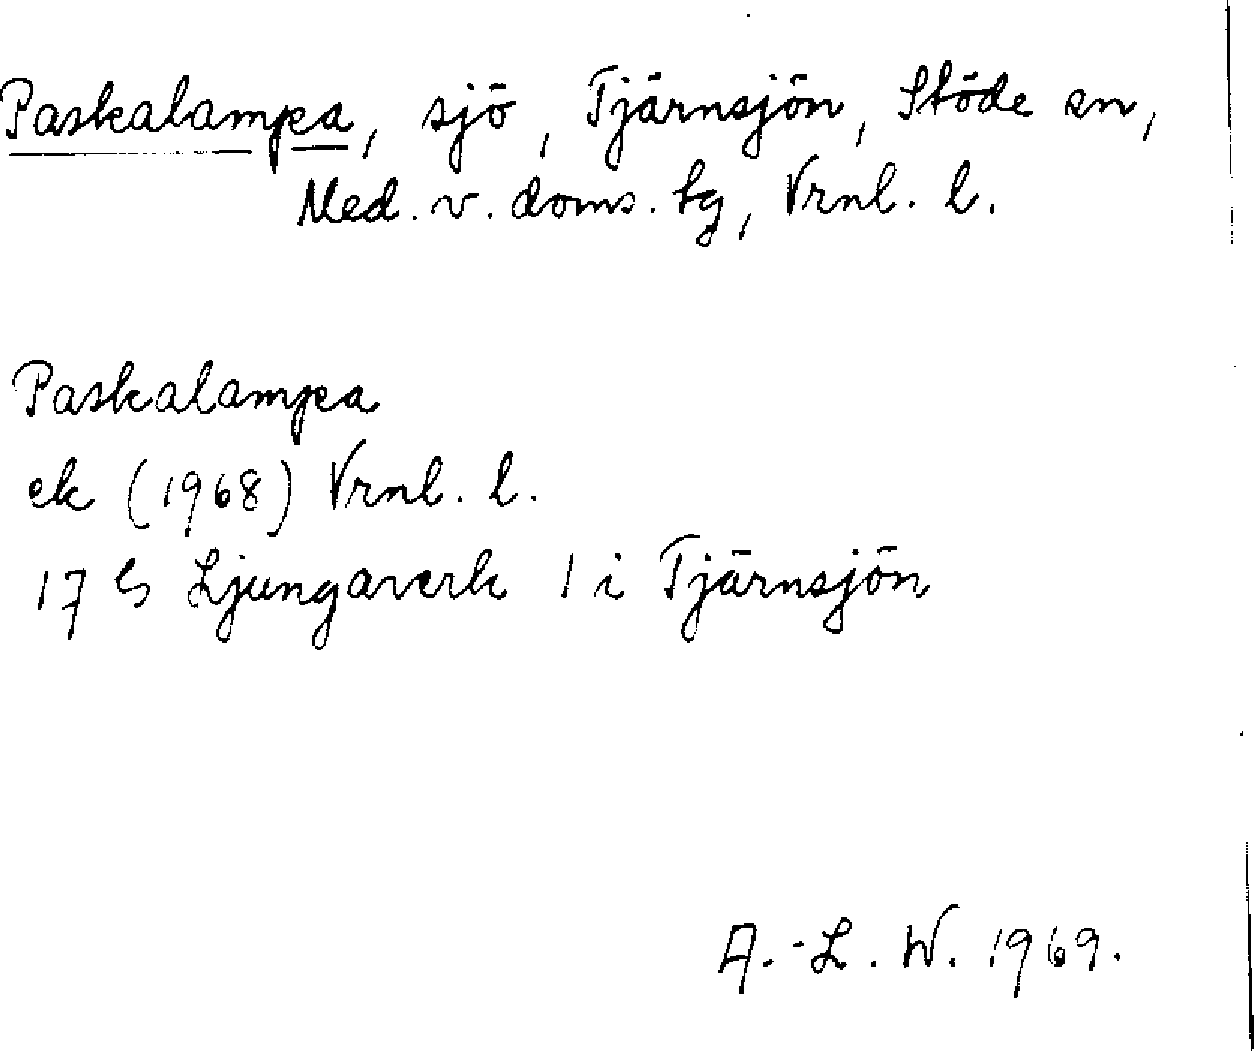 Paskalampa, sjö, Tjärnsjön, Stöde sn,
Med. v. doms. tg, Vrnl. l.
Paskalampa
ek (1968) Vrnl. l.
17 G Ljungaverk 1 i Tjärnsjön
A.-L. W. 1969.